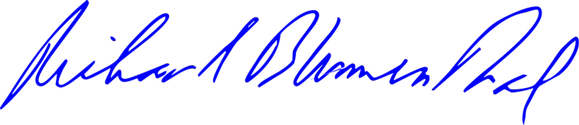 Richard Blumenthal